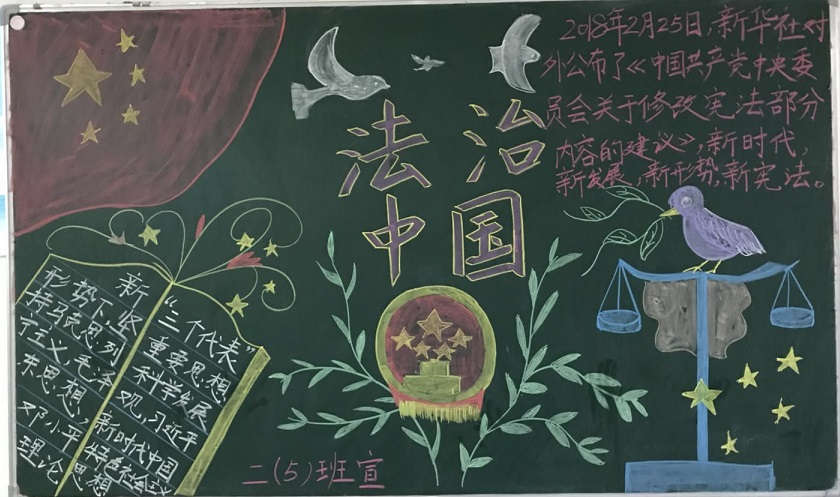 法治
中国
2018年2月25日,新华社对
外公布了《中国共产党中央委
员会关于修改宪法部分
内容的建议》,新时代,
新发展,新形势,新宪法。
新
形势下,坚
持马克思列
宁主义,毛泽
东思想,
邓小平
理论
“三个代表”
重要思想
科学发展
观,习近平
新时代中国
特色社会主义
思想
二(5)班宣